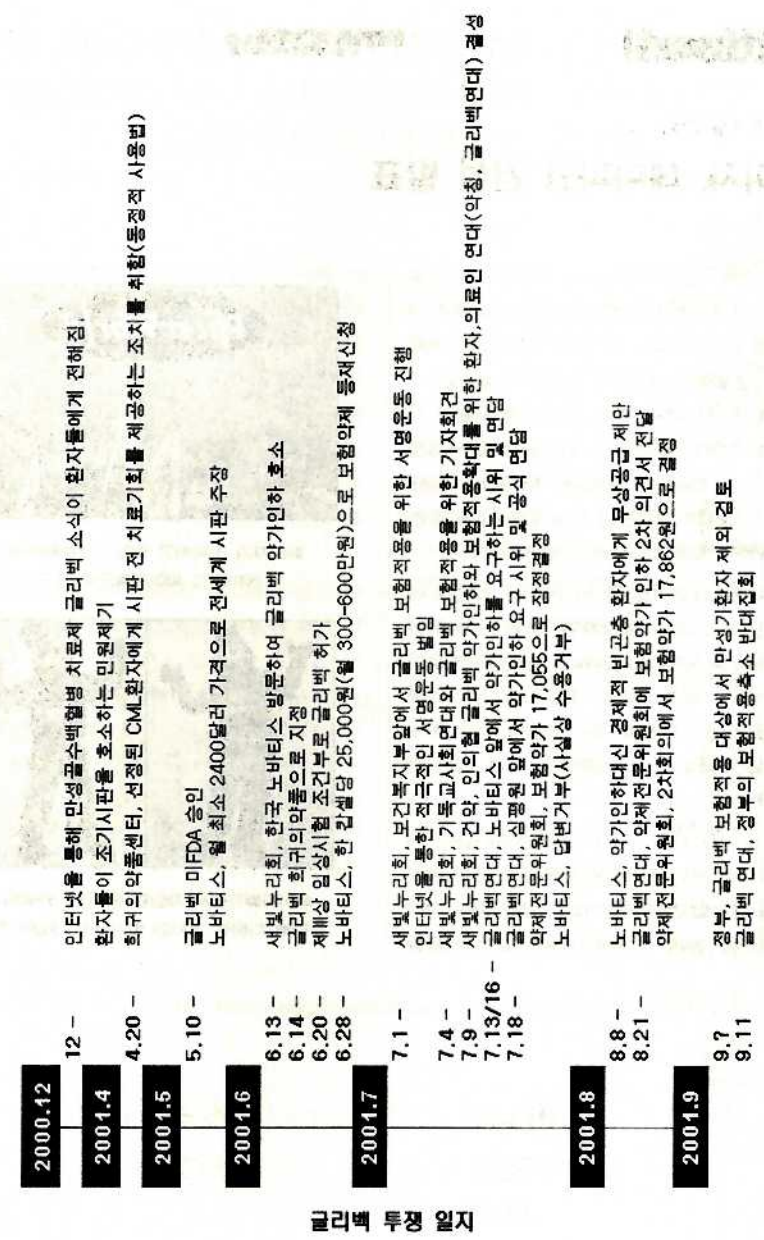 글리백 투쟁 일지
2000.12
12 - 인터넷을 통해 만성골수백혈병 치료제 글리벡 소식이 환자들에게 전해짐,
환자들이 조기시판을 호소하는 민원제기
2001.4
4.20 - 희귀의약품센터, 선정된 CML환자에게 시판 전 치료기회를 제공하는 조치를 취함(동정적 사용법)
2001.5
5.10 - 글리벡 미FDA 승인
노바티스, 월 최소 2400달러 가격으로 전세계 시판 주장
2001.6
6.13 - 새빛누리회, 한국 노바티스 방문하여 글리벡 약가인하 호소
6.14 - 글리벡 희귀의약품으로 지정
6.20 - 제Ⅲ상 임상시험 조건부로 글리벡 허가
6.28 - 노바티스, 한 캅셀당 25,000원(월 300-600만원)으로 보험약제 등재신청
2001.7
7.1 - 새빛누리회, 보건복지부앞에서 글리벡 보험적용을 위한 서명운동 진행
인터넷을 통한 적극적인 서명운동 벌임
7.4 - 새빛누리회, 기독교사회연대와 글리벡 보험적용을 위한 기자회견
7.9 - 새빛누리회, 건약, 인의협 글리벡 약가인하와 보험적용확대를 위한 환자,의료인 연대(약칭, 글리벡연대) 결성
7.13/16 - 글리벡연대, 노바티스 앞에서 약가인하를 요구하는 시위 및 면담
7.18 - 글리벡연대, 심평원 앞에서 약가인하 요구 시위 및 공식 면담
약제전문위원회, 보험약가 17,055으로 잠정결정
노바티스, 답변거부(사실상 수용거부)
2001.8
8.8 - 노바티스, 약가인하대신 경제적 빈곤층 환자에게 무상공급 제안
8.21 - 글리벡연대, 약제전문위원회에 보험약가 인하 2차 의견서 전달
약제전문위원회, 2차회의에서 보험약가 17,862원으로 결정
2001.9
9.7 정부, 글리벡 보험적용 대상에서 만성기환자 제외 검토
9.11 글리벡 연대, 정부의 보험적용축소 반대집회